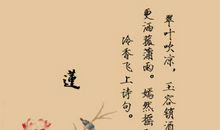 翠叶吹凉，玉容销酒，
更洒菰蒲雨。嫣然摇
冷香飞上诗句。
莲